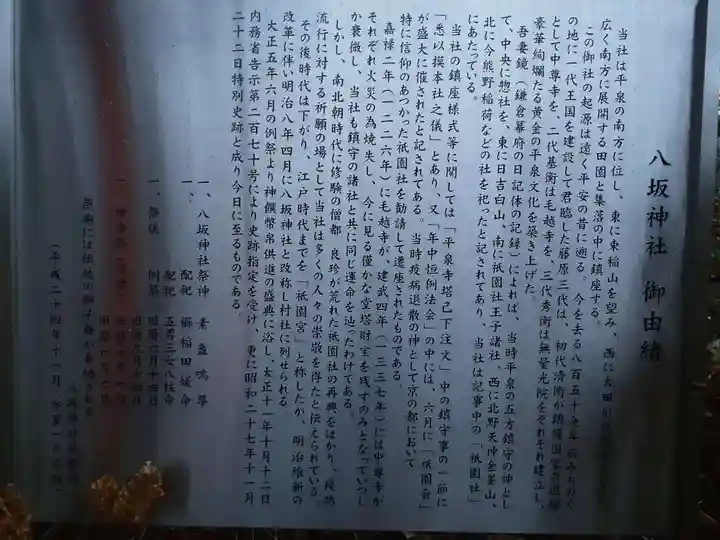 八坂神社 御由緒
当社は平泉の南方に位し、東に束稲山を望み、西に太田川
広く南方に展開する田園と集落の中に鎮座する。
この御社の起源は遠く平安の昔に遡る。今を去る八百五十
の地に一代王国を建設して君臨した藤原三代は、初代清衡が鎮護国家の道場
として中尊寺を、二代基衡は毛越寺を、三代秀衡は無量光院をそれぞれ建立し、
豪華絢爛たる黄金の平泉文化を築き上げた。
吾妻鏡(鎌倉幕府の日記体の記録)によれば、当時平泉の五方鎮守の神とし
て、中央に惣社を、東に日吉白山、南に祇園社王子諸社、西に北野天神金峯山、
北に今熊野稲荷などの社を祀ったと記されてあり、当社は記事中の「祇園社」
にあたっている。
当社の鎮座様式等に関しては「平泉寺塔已下注文」中の鎮守事の一節に
「悉以摸本社之儀」とあり、又「年中恒例法会」の中には、六月に「祇園会」
が盛大に催されたと記されてある。当時疫病退散の神として京の都において
特に信仰のあつかった祇園社を勧請して遷座されたものである。
嘉禄二年(一二二六年)に毛越寺が、建武四年(一三三七年)には中尊寺が
それぞれ火災の為焼失し、今に見る僅かな堂塔財宝を残すのみとなっていつし
か衰微し、当社も鎮守の諸社と共に同じ運命を辿ったわけである。
しかし、南北朝時代に修験の僧都 良珍が荒れた祇園社の再興をはかり、疫病
流行に対する祈願の場として当社は多くの人々の崇敬を得たと伝えられている。
その後時代は下がり、江戸時代までを「祇園宮」と称したが、明治維新の
改革に伴い明治八年四月に八坂神社と改称し村社に列せられる。
大正五年六月の例祭より神饌幣帛供進の盛典に浴し、大正十一年十月十二日
内務省告示第二百七十号により史跡指定を受け、更に昭和二十七年十一月
二十二日特別史跡と成り今日に至るものである。
一、八坂神社祭神 素盞嗚尊
配祀 櫛稲田媛命
配祀 五男三女八柱命
一、祭儀 例祭 旧暦六月十四日
祭典には伝統の獅子舞が奉納される
(平成二十四年十一月